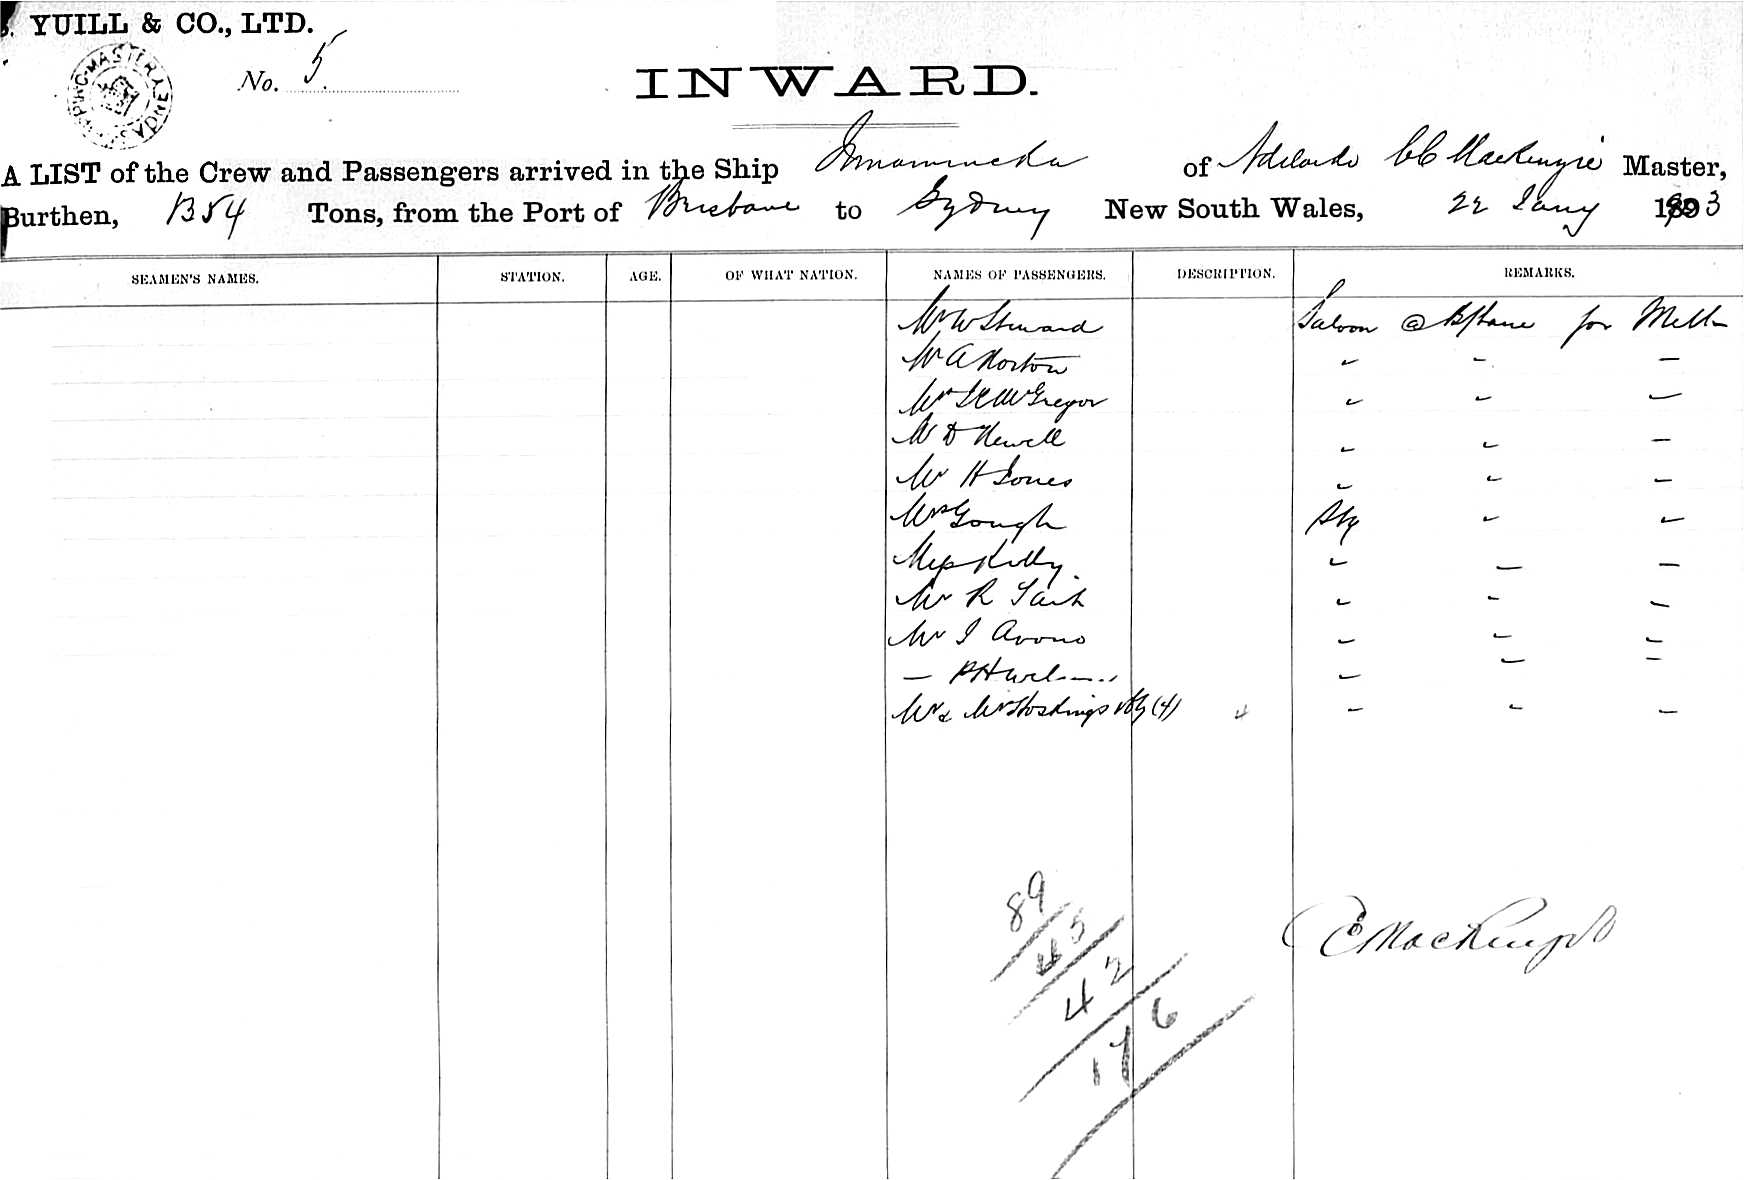 YUILL & CO., LTD.
SHIPPING MASTER SYDNEY
No. 5.
INWARD.
A LIST of the Crew and Passengers arrived in the Ship Innamincka of Adelaide CC Mackenzie Master,
Burthen, 1354 Tons, from the Port of Brisbane to Sydney New South Wales, 22 Jany 1893
SEAMEN'S NAMES. STATION. AGE. OF WHAT NATION. NAMES OF PASSENGERS. DESCRIPTION. REMARKS.
Mr W Steward Saloon @ B/bane for Melb
Mr A Norton " " "
Mr McGregor " " "
Mr D Newell " " "
Mr H Jones " " "
Mrs Gough Stg " "
Miss Kelly " " "
Mr R Tait " " "
Mr J " " "
— P " " "
Mr & Mrs Hoskings & fy (4) 4 " " "
89
45
42
176
Mackenzie